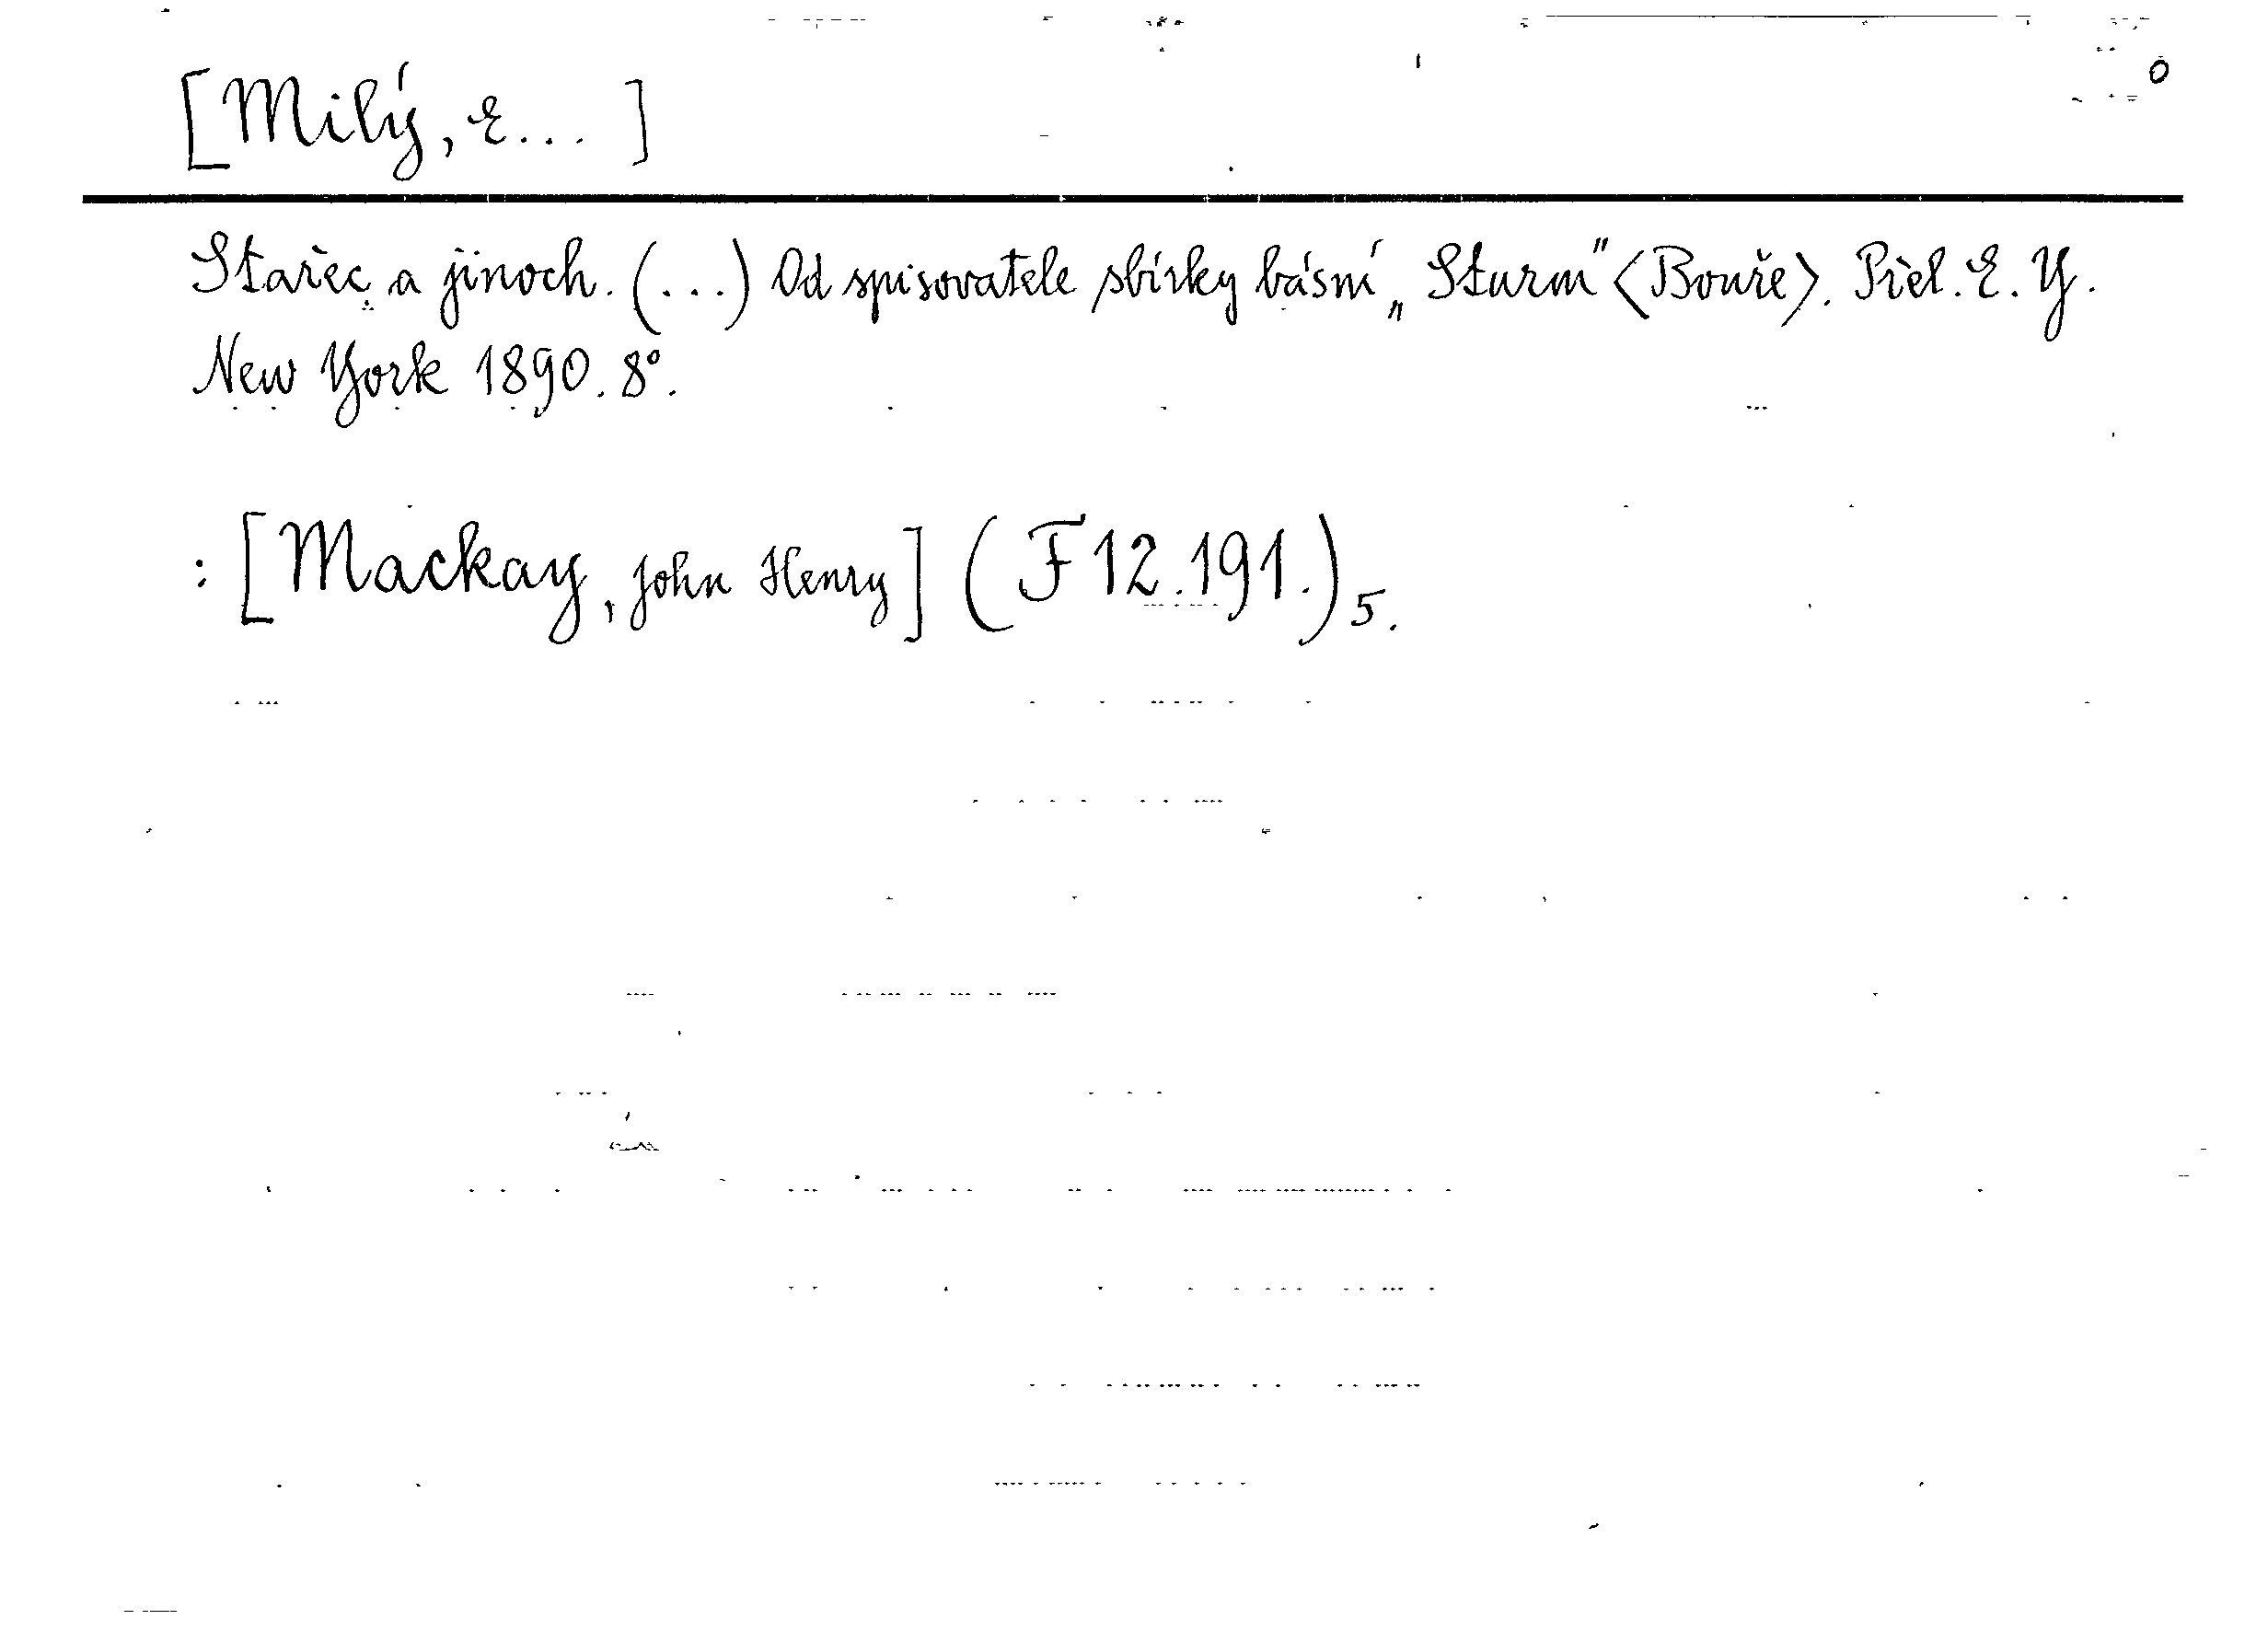 0
[Milý, E... ]
Stařec a jinoch. (...) Od spisovatele sbírky básní „Sturm" <Bouře>. Přel. E. Y.
New York 1890. 8°.
: [Mackay, John Henry] (F 12.191.) 5.